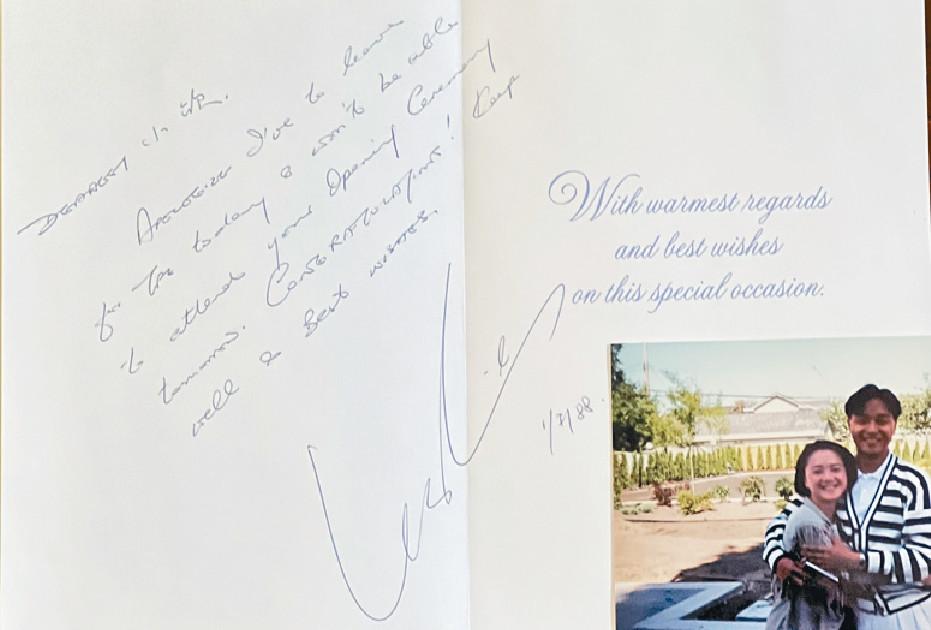 DEAREST
APOLOGIZE I've to leave
for Tpe today & won't be able
to attend your Opening Ceremony
tomorrow. CONGRATULATIONS! Keep
well & Best wishes,
Leslie
1/7/88.
With warmest regards
and best wishes
on this special occasion.